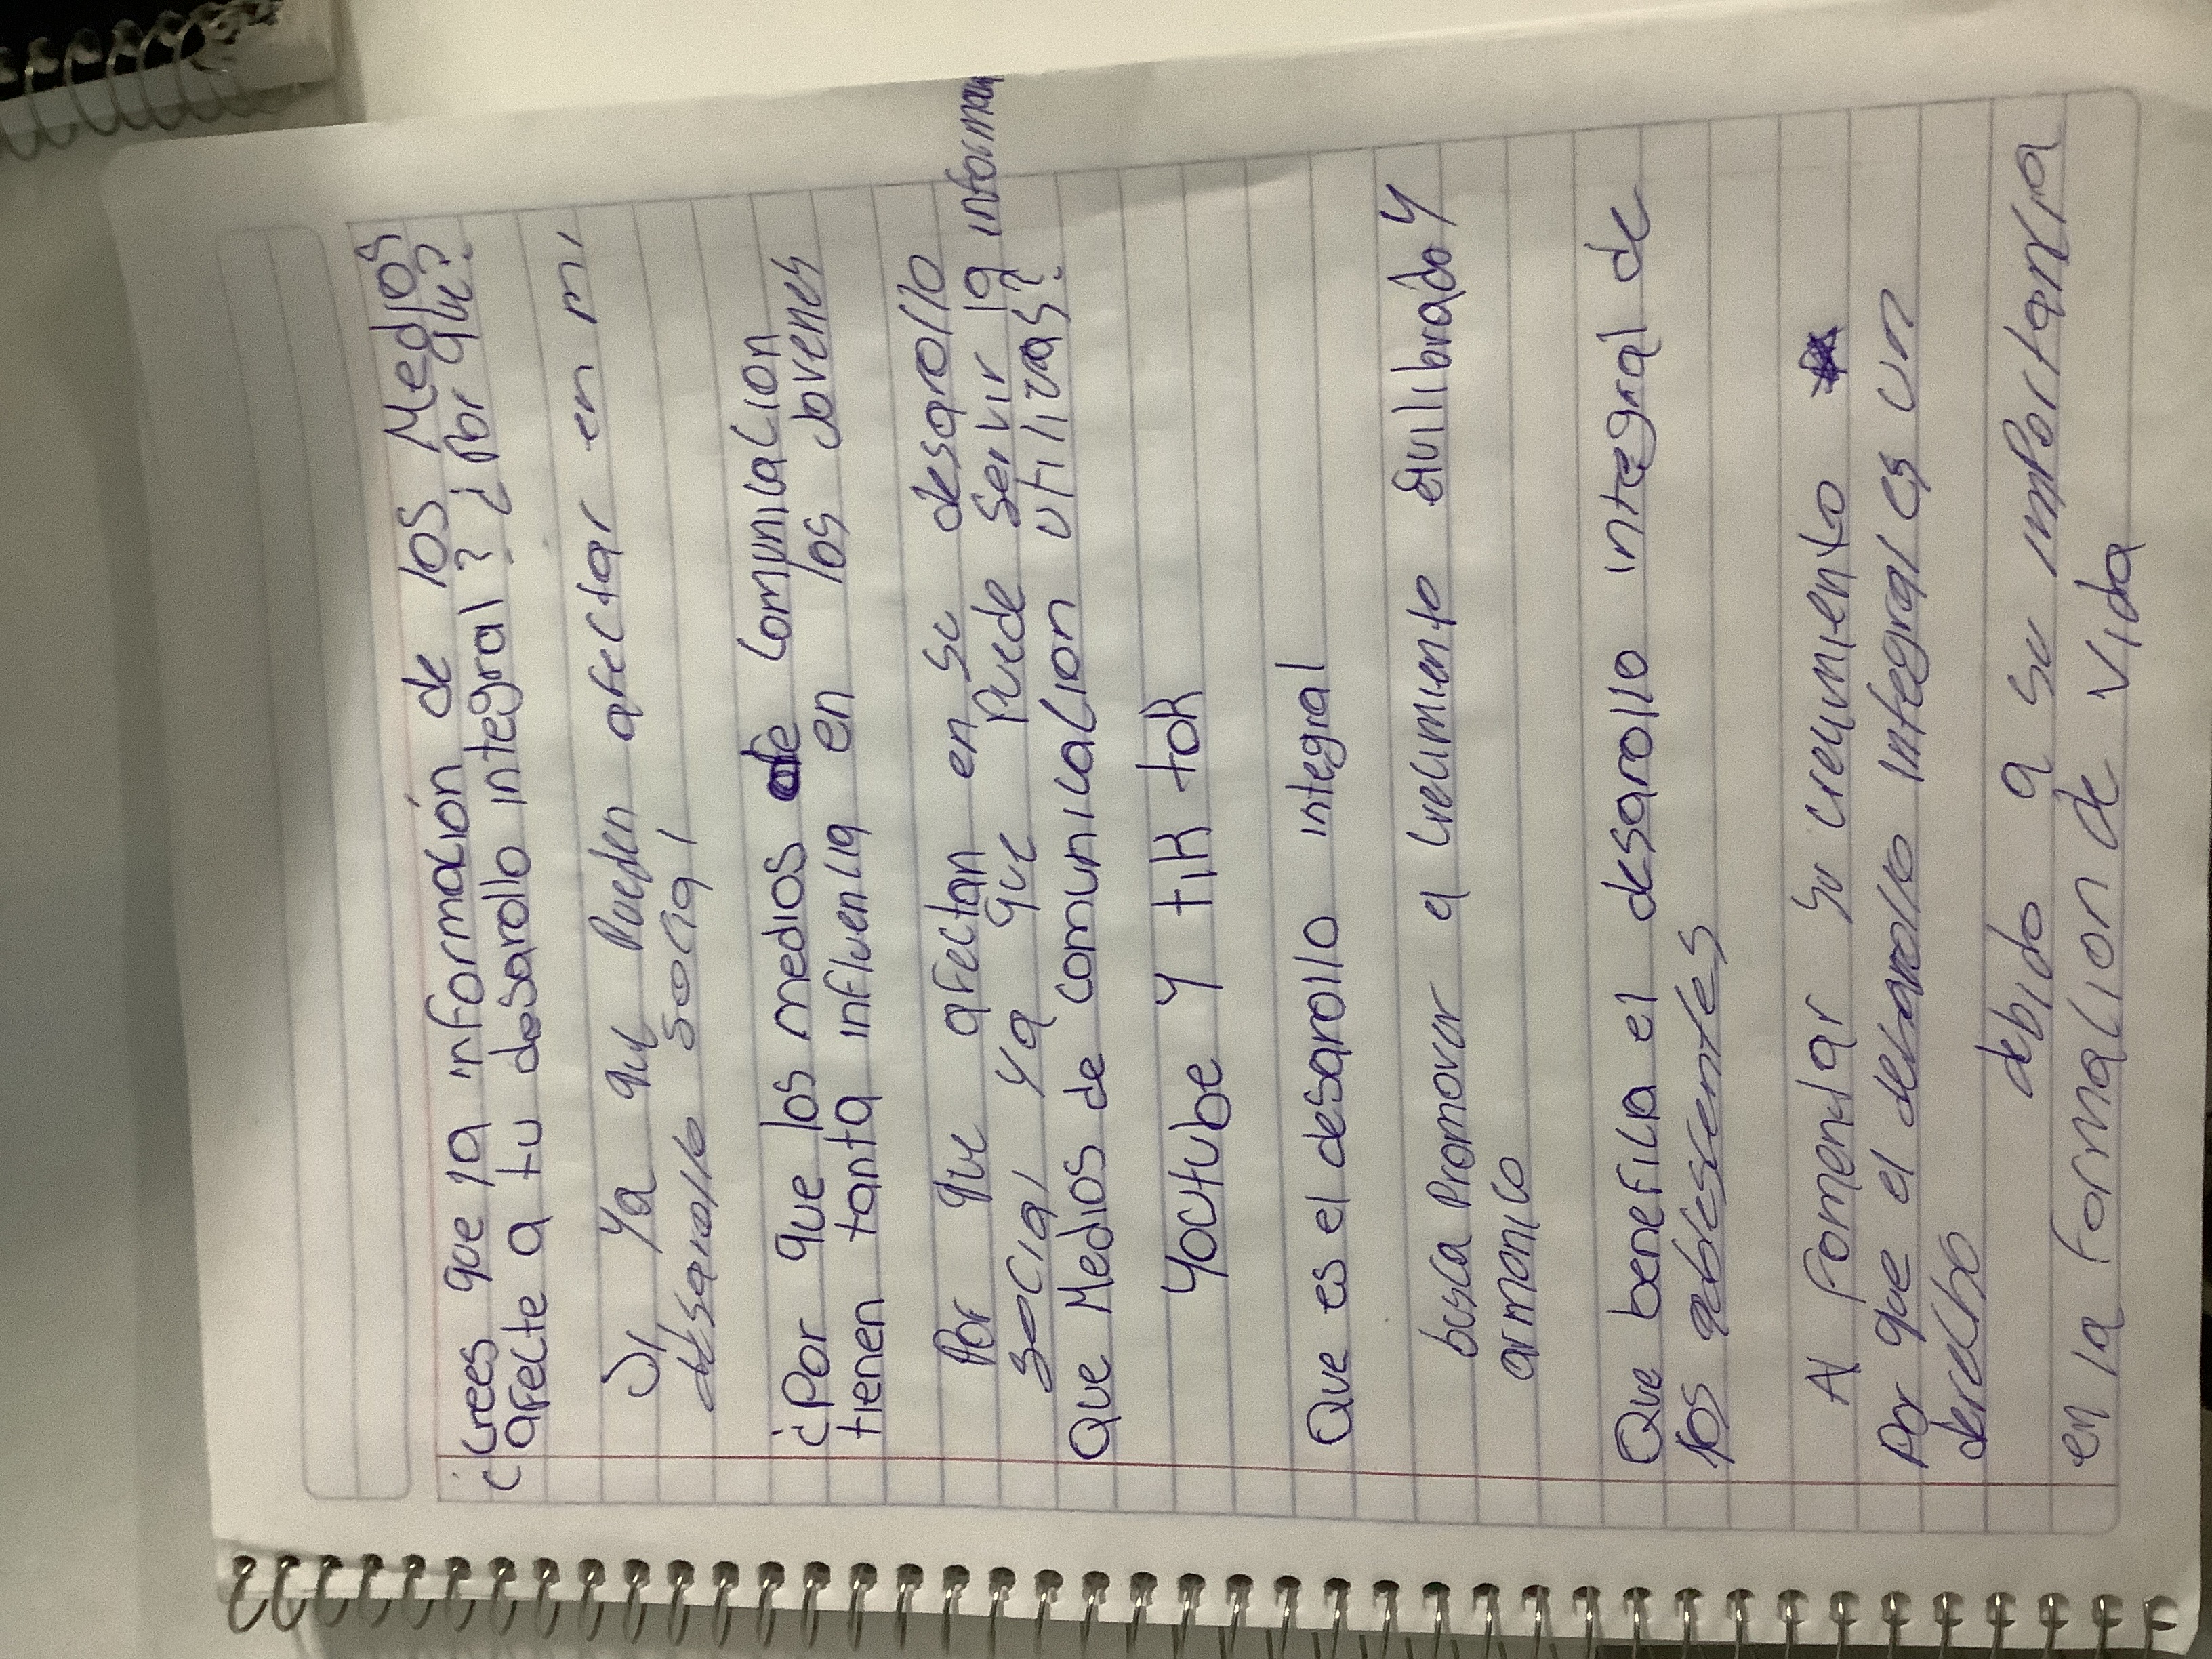 ¿Crees que la información de los Medios
afecte a tu desarollo integral? ¿Por que?
Si ya que Pueden afectar en mi
desarrollo social
¿Por que los medios de comunicacion
tienen tanta influencia en los Jovenes
Por que afectan en su desarollo
social ya que Puede servir la informa
Que Medios de comunicacion utilizas?
Youtube y tik tok
Que es el desarollo integral
busca Promover el crecimiento equilibrado y
armonico
Que beneficia el desarollo integral de
los adolescentes
Al Fomentar su crecimiento
Por que el desarollo integral es un
derecho
debido a su importancia
en la formacion de vida